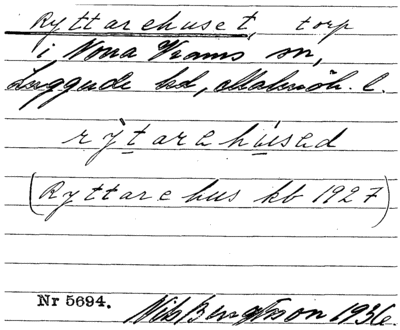 Ryttarehuset, torp
i Norra Vrams sn,
Luggude hd, Malmöh. l.
rỳtarehùsed
(Ryttarehus kb 1927)
Nr 5694. Nils Bengtsson 1936.